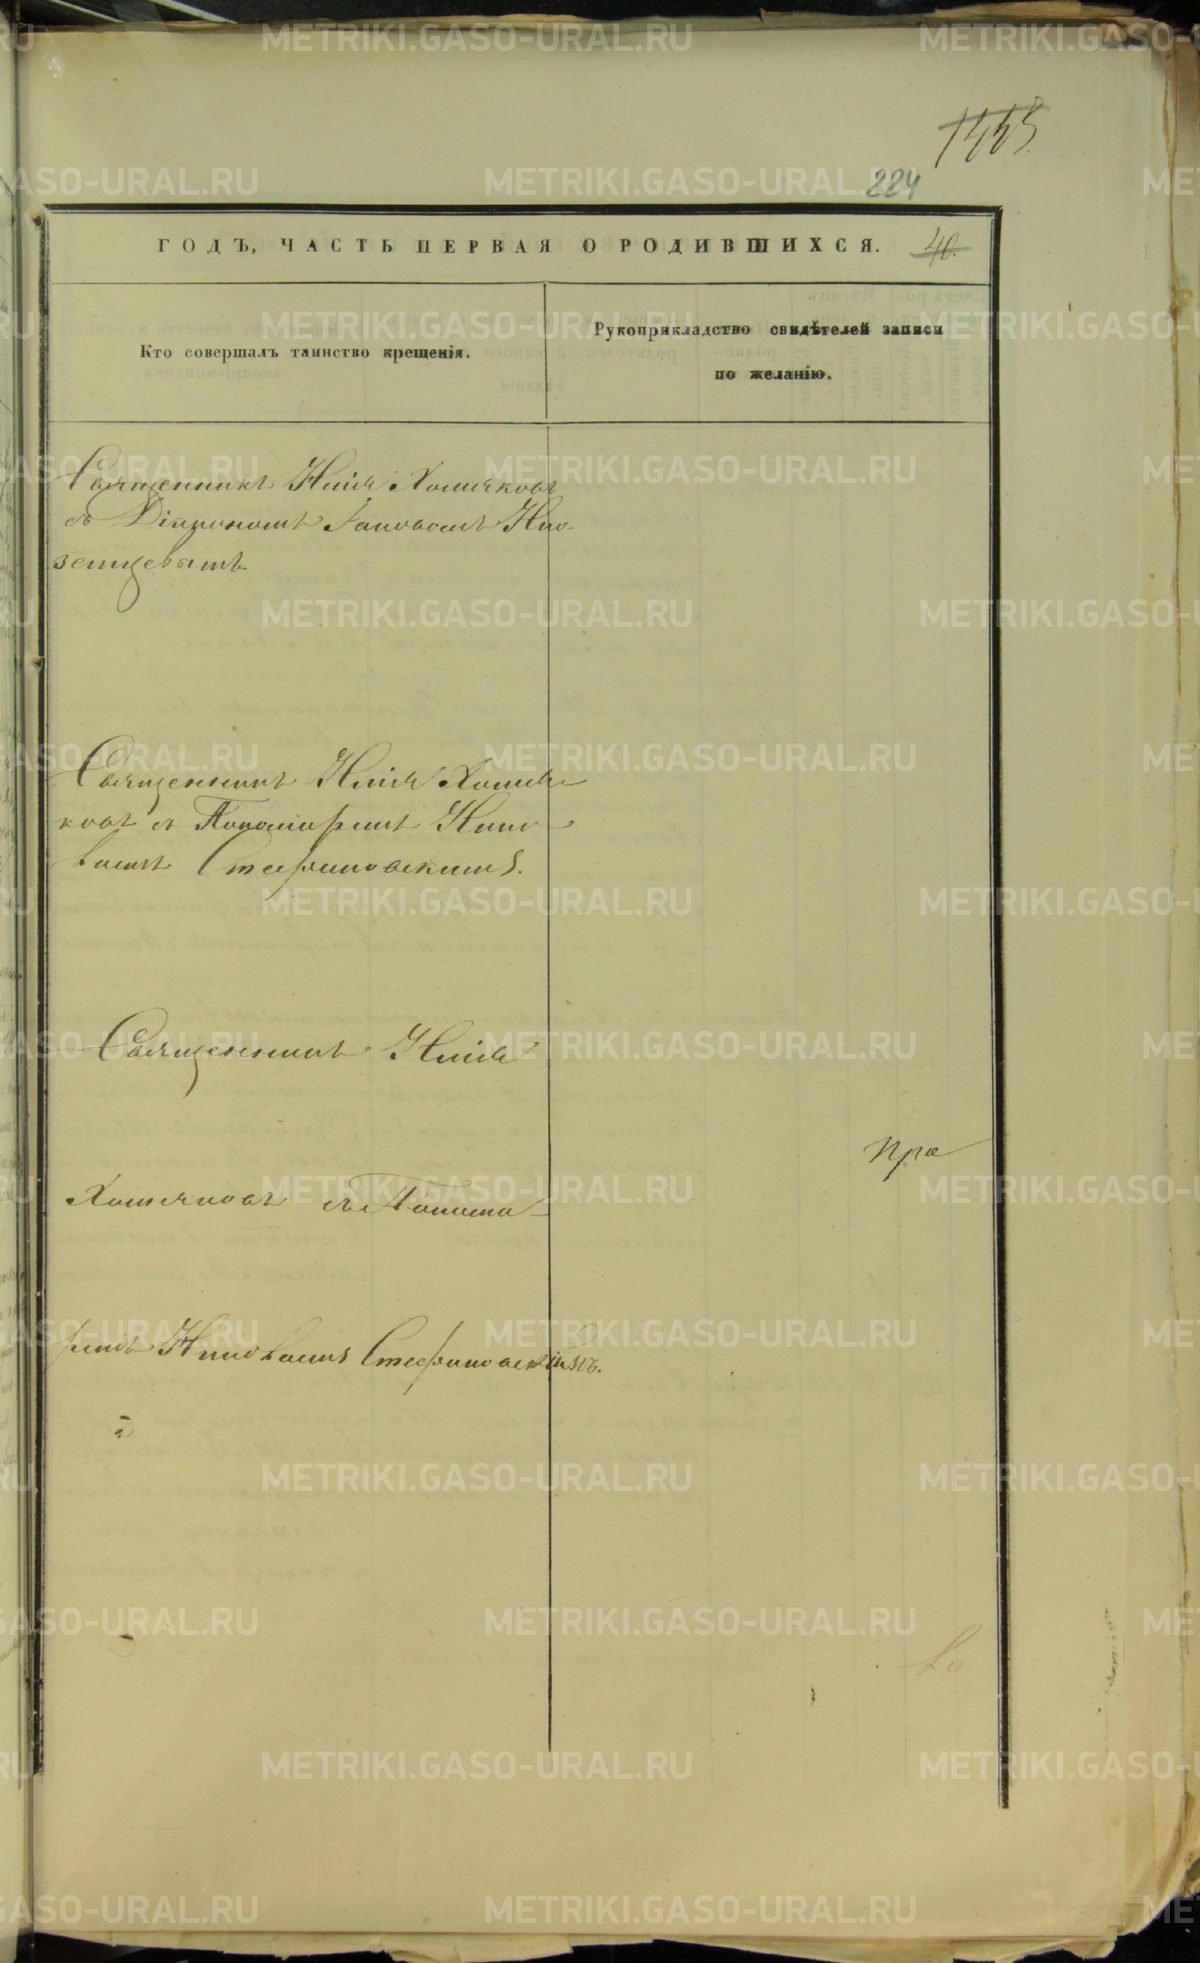 224
ГОДЪ, ЧАСТЬ ПЕРВАЯ О РОДИВШИХСЯ. 40.
Кто совершалъ таинство крещенія.
Рукоприкладство свидѣтелей записи
по желанію.
Священникъ Илія Хомяковъ
съ Діакономъ Іаковомъ
Священникъ Илія Хомя
ковъ съ Пономаремъ Нико
лаемъ Стефановскимъ.
Священникъ Илія
Хомяковъ съ Понома
ремъ Николаемъ Стефановскимъ.
METRIKI.GASO-URAL.RU